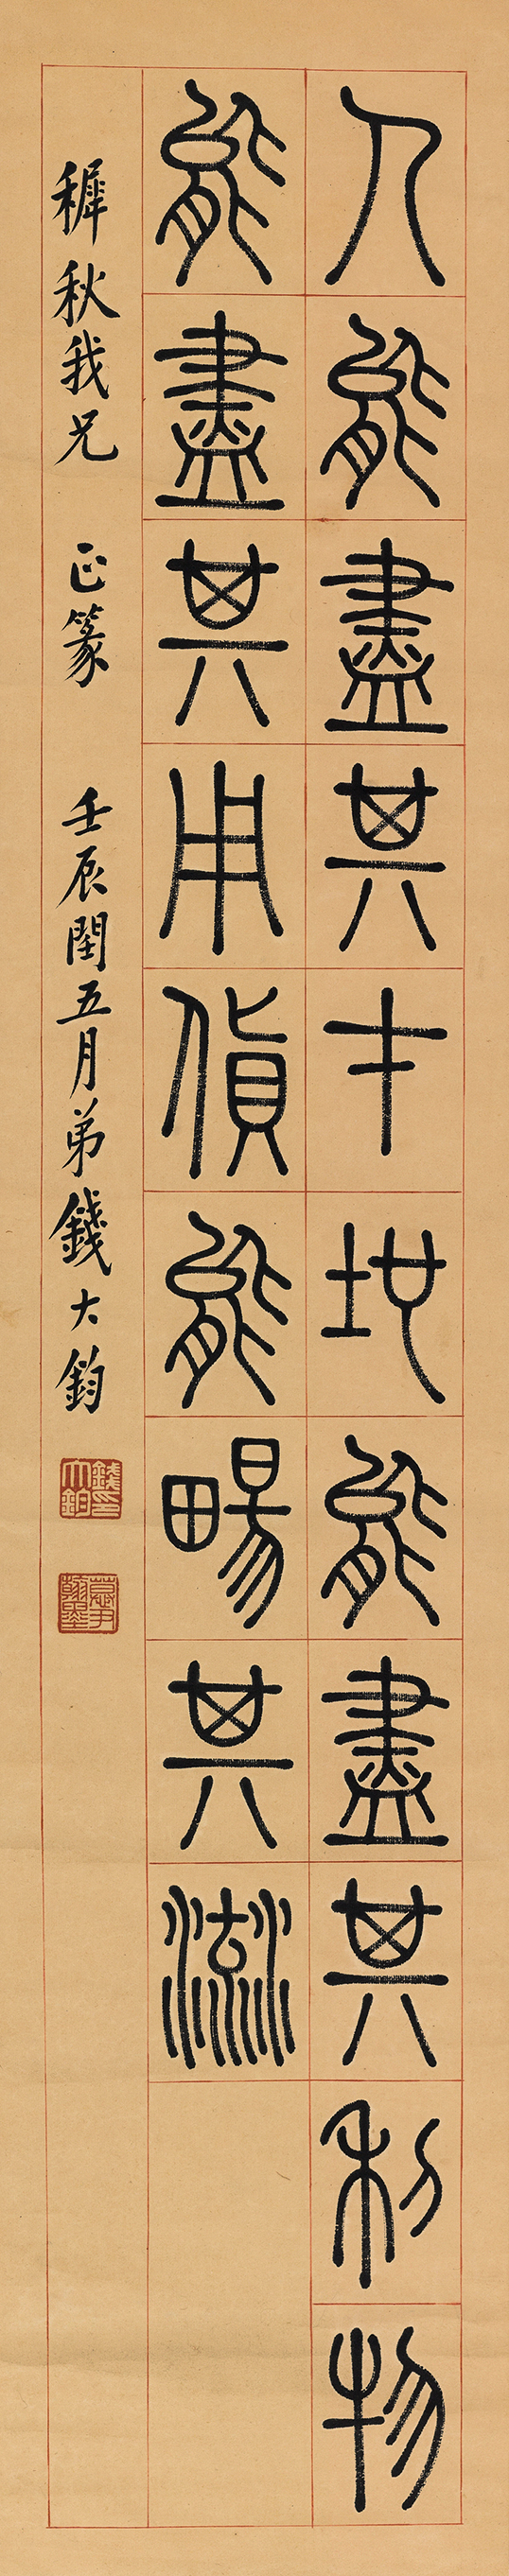 人能盡其才地能盡其利物
能盡其用貨能暢其流
稺秋我兄 正篆 壬辰閏五月弟錢大鈞
錢大鈞印
慕尹翰墨